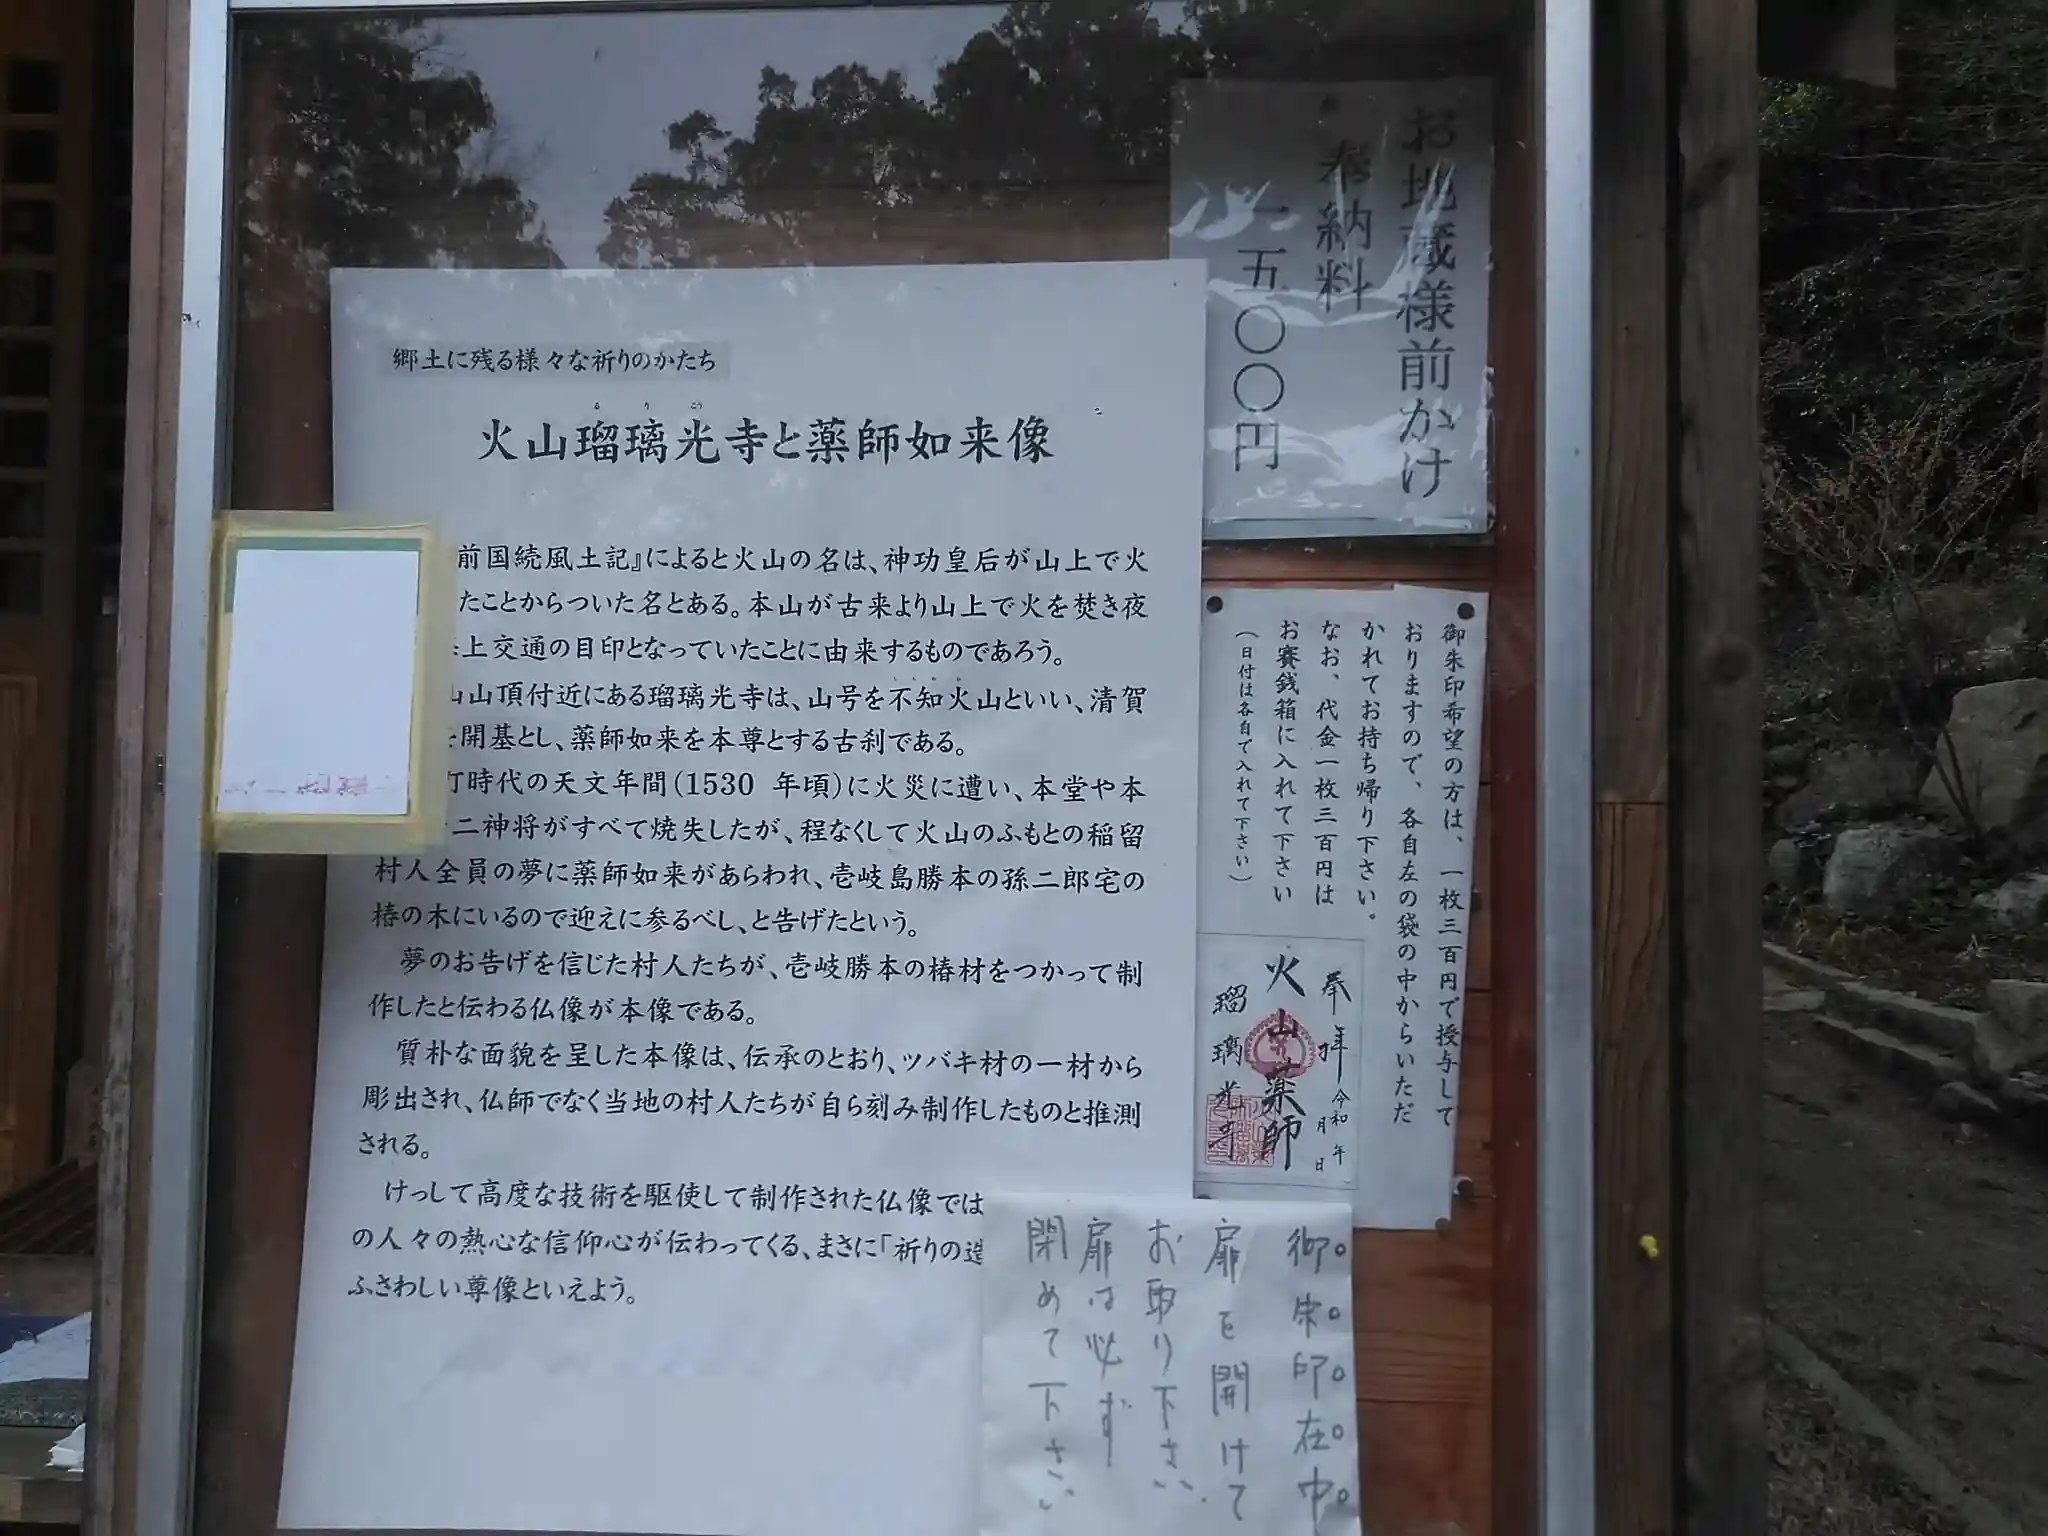 郷土に残る様々な祈りのかたち
るりこう
火山瑠璃光寺と薬師如来像
前国続風土記』によると火山の名は、神功皇后が山上で火
たことからついた名とある。本山が古来より山上で火を焚き夜
上交通の目印となっていたことに由来するものであろう。
山頂付近にある瑠璃光寺は、山号を不知火山といい、清賀
開基とし、薬師如来を本尊とする古刹である。
町時代の天文年間(1530 年頃)に火災に遭い、本堂や本
二神将がすべて焼失したが、程なくして火山のふもとの稲留
村人全員の夢に薬師如来があらわれ、壱岐島勝本の孫二郎宅の
椿の木にいるので迎えに参るべし、と告げたという。
夢のお告げを信じた村人たちが、壱岐勝本の椿材をつかって制
作したと伝わる仏像が本像である。
質朴な面貌を呈した本像は、伝承のとおり、ツバキ材の一材から
彫出され、仏師でなく当地の村人たちが自ら刻み制作したものと推測
される。
けっして高度な技術を駆使して制作された仏像では
の人々の熱心な信仰心が伝わってくる、まさに「祈りの造
ふさわしい尊像といえよう。
お地蔵様前かけ
奉納料
一五〇〇円
御朱印希望の方は、一枚三百円で授与して
おりますので、各自左の袋の中からいただ
かれてお持ち帰り下さい。
なお、代金一枚三百円は
お賽銭箱に入れて下さい
（日付は各自で入れて下さい）
奉拝 令和 年 月 日
火山薬師
瑠璃光寺
御朱印在中
扉を開けて
お取り下さい
扉は必ず
閉めて下さい